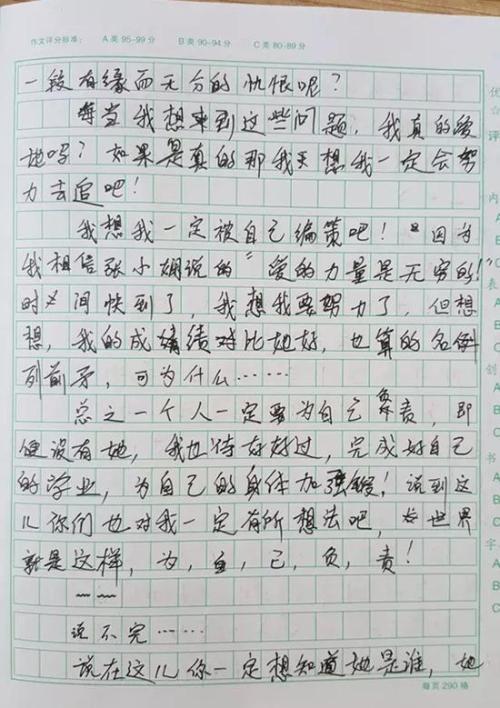 作文评分标准： A类 95-99分 B类 90-94分 C类 80-89分
一段有缘而无分的忧恨呢？
每当我想来到这些问题，我真的爱
她吗？如果是真的那我天想我一定会努
力去追吧！
我想我一定被自己编策吧！因为
我相信张小娴说的“爱的力量是无穷的！”
时间快到了，我想我要努力了，但想
想，我的成绩对比她好，也算的名
列前矛，可为什么……
总之一个人一定要为自己负责，即
便没有她，我也待好好过，完成好自己
的学业，为自己的身体加强锻！说到这
儿你们也对我一定有所想法吧，世界
就是这样，为，自，己，负，责！
~ ~
说不完……
说在这儿你一定想知道她是谁，她
每页290格
优
☆
评
内
A
B
C
表
创
书
A
B
C
字